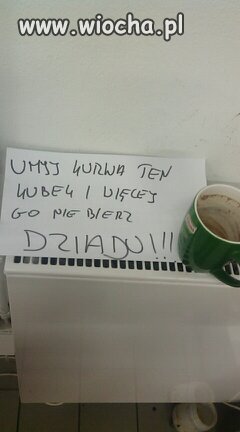 www.wiocha.pl
UMYJ KURWA TEN
KUBEK I WIĘCEJ
GO NIE BIERZ
DZIADU!!!